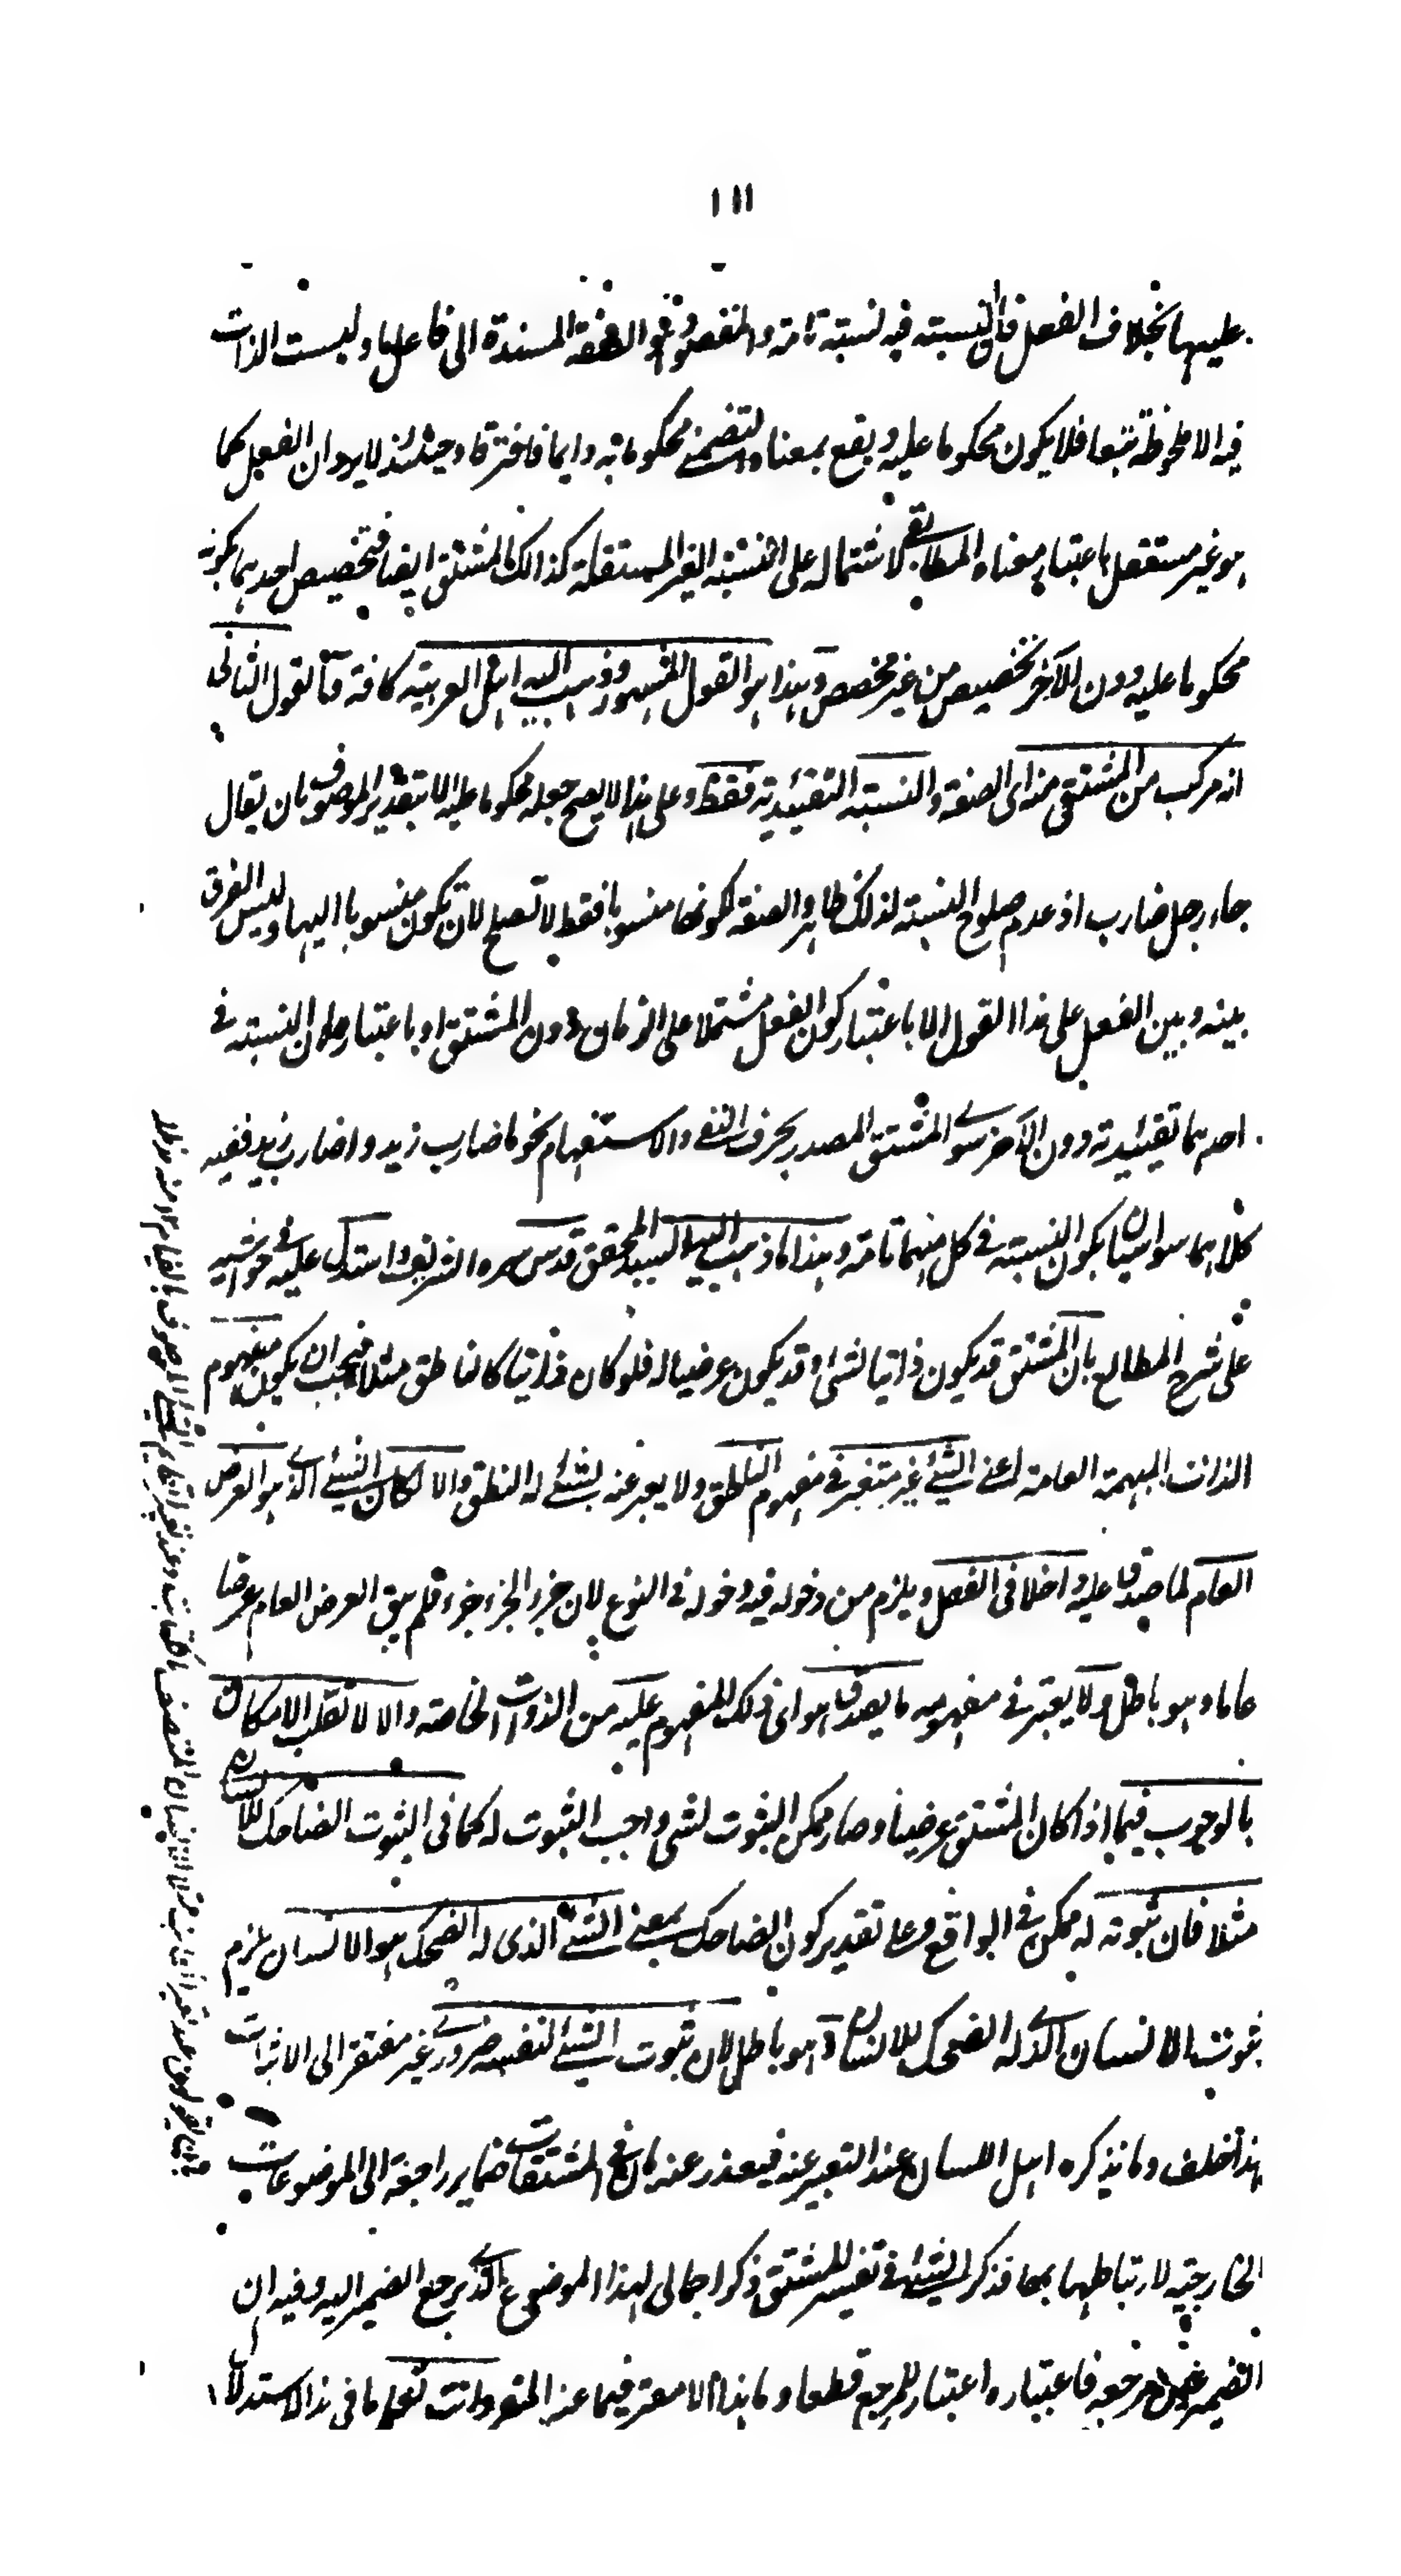 ١١١
عليها بخلاف الفعل فان النسبته فيه نسبته تامته والمقصود هو الصفة المسندة الى فاعل ما وليست الذات
فيه الا ملحوظة تتبعا فلا يكون محكوما عليه ويقع بمعناه التضمنے محكوما به دايما فافترقا وحينئذ لا يرد ان الفعل كما
هو غير مستقل باعتبار معناه المطابقے لاشتماله على النسبته الغير المستقلة كذالك المشتق ايضا فتخصيص احدهما بكونه
محكوما عليه دون الآخر تخصيص من غير مخصص وهذا هو القول المشهور وذهب اليه اهل العربيته كافة والقول الثانى
انه مركب من المشتق منه اى الصفة والنسبته التقئيديته فقط وعلى هذا لا يصح جعله محكوما عليه الا بتقدير الموصوف بان يقال
جاء رجل ضارب اذ عدم صلوح النسبته لذلك ظاهر والصفة لكونها منسوبا فقط لا تصلح لان تكون منسوبا اليها وليس الفرق
بينه وبين الفعل على هذا القول الا باعتبار كون الفعل مشتملا على الزمان دون المشتق او باعتبار كون النسبته فى
احدهما تقيئيدته دون الآخر سوے المشتق المصدر بحرف النفے والاستفهام نحو ما ضارب زيد واضارب زيد ففيه
كلاهما سواسيان بكون النسبته فى كل منهما تامته وهذا ما ذهب اليه السيد المحقق قدس سره الشريف واستدل عليه فى حواشيه
على شرح المطالع بان المشتق قد يكون ذاتيا لشئ وقد يكون عرضيا له فلو كان ذاتيا كالناطق مثلا فيجب ان يكون مفهوم
الذات المبهمة العامة اعنے الشئے غير معتبر فى مفهوم الناطق ولا يعبر عنه بشئے له النطق والا لكان الشيئے الذے هو العرض
العام لما صدق عليه داخلا فى الفصل ويلزم من دخوله فيه دخوله فى النوع لان جزء الجزء جزء فلم يبق العرض العام عرضا
عاما وهو باطل ولا يعتبر فى مفهومه ما يصدق هو اى ذلك المفهوم عليه من الذوات الخاصته والا لانقلب الامكان
بالوجوب فيما اذا كان المشتق عرضيا وصار ممكن الثبوت لشئ واجب الثبوت له كما فى الثبوت الضاحك للانسان
مثلا فان ثبوته له ممكن فى الواقع وعلى تقدير كون الضاحك بمعنے الشئے الذى له الضحك هو الانسان يلزم
ثبوت الانسان الذے له الضحك للانسان وهو باطل لان ثبوت الشئے لنفسه ضرورے غير مفتقر الى الاثبات
هذا خلف وما يذكره اهل اللسان عند التعبير عنه فيعذر عنه بان فى المشتقات ضماير راجعة الى الموضوعات
الخارجيته لارتباطها بها فذكر الشئے فى تفسير المشتق ذكر اجمالى لهذا الموضوع الذے يرجع الضمير اليه وفيه ان
الضمير مرجعه فاعتباره اعتبار للمرجع قطعا وما هذا الا مفر فيما عنه المفر وانت تعلم ما فى هذا الاستدلال